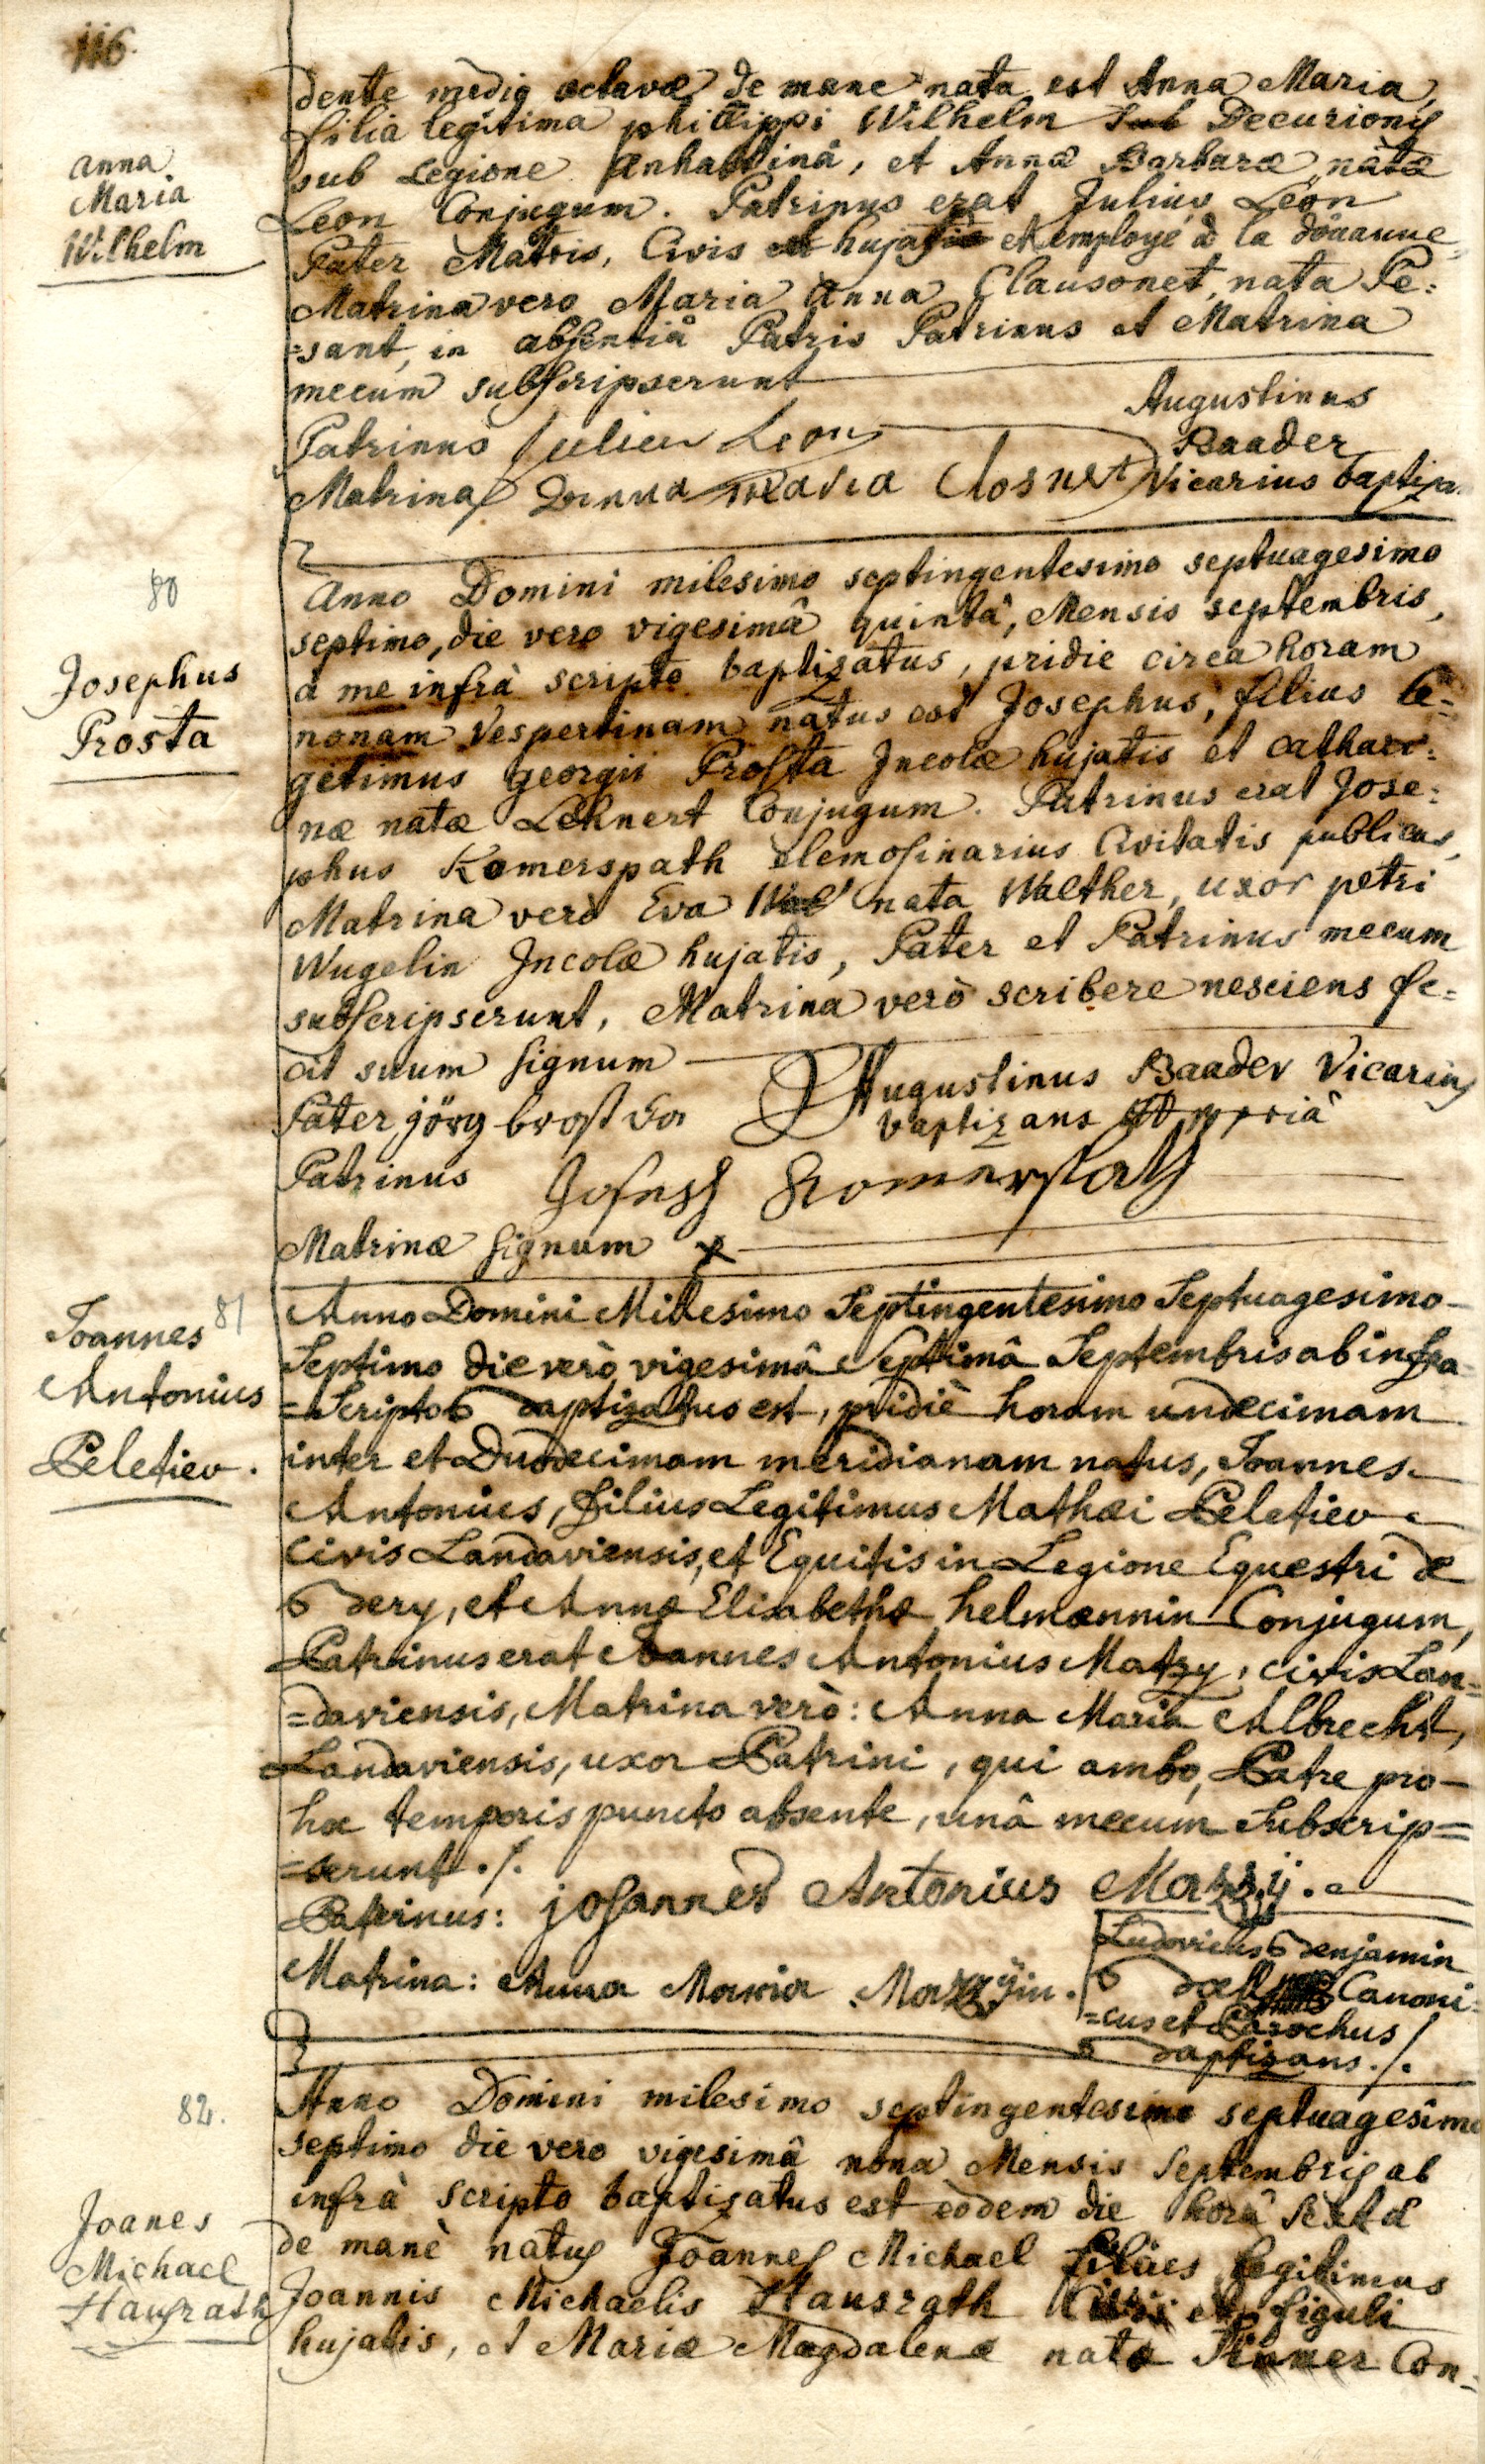 116.
dente mediâ octavæ de mane nata est Anna Maria,
filia legitima philippi Wilhelm Sub Decurionis
Anna
Maria
Wilhelm
sub Legione Anhaltinâ, et Annæ Barbaræ natæ
Leon Conjugum. Patrinus erat Julius Leon
Pater Matris, Civis et hujatis et employé à la doüanne,
Matrina vero Maria Anna Clausonet, nata Pe=
=sant, in absentiâ Patris Patrinus et Matrina
mecum subscripserunt
Augustinus
Baader
Vicarius baptizans
Patrinus Julien Leon
Matrina Anna Maria Closnet
80
Josephus
Prosta
Anno Domini milesimo septingentesimo septuagesimo
septimo, die vero vigesimâ quintâ, Mensis septembris,
à me infrà scripto baptizatus, pridie circa horam
nonam Vespertinam natus est Josephus, filius le=
gitimus georgii Prosta Incolæ hujatis et cathari=
næ natæ Lehnert Conjugum. Patrinus erat Jose=
phus Komerspath elemosinarius Civitatis publicus,
Matrina verò Eva Wal nata Walther, uxor petri
Wugelin Incolæ hujatis, Pater et Patrinus mecum
subscripserunt, Matrina verò scribere nesciens fe=
cit suum signum
Augustinus Baader Vicarius
baptizans
Pater, jörg brost
Patrinus Joseph Komerspath
Matrinæ signum x
81
Joannes
Antonius
Peletier.
Anno Domini Milesimo Septingentesimo Septuagesimo
Septimo die verò vigesimâ Septimâ Septembris ab infra=
=Scripto baptizatus est, pridiè horam undecimam
inter et Duodecimam meridianam natus, Joannes
Antonius, filius Legitimus Mathæi Peletier
civis Landaviensis, et Equitis in Legione Equestri de
Bery, et Annæ Elisabethæ helmænnin Conjugum,
Patrinus erat Joannes Antonius Matzy, civis Lan=
=daviensis, Matrina verò: Anna Maria Albrecht,
Landaviensis, uxor Patrini, qui ambo, Patre pro
hoc temporis puncto absente, unâ mecum Subscrip=
=serunt ./.
Patrinus: johannes Antonius Mazzÿ.
Matrina: Anna Maria Mazzÿin.
Ludovicus Benjamin
Canoni=
=cus et Parochus
baptizans ./.
82.
Joanes
Michael
Hausrath
Anno Domini milesimo septingentesimo septuagesimo
septimo die vero vigesimâ nona Mensis Septembris ab
infrà scripto baptizatus est eodem die horâ sextâ
de manè natus Joannes Michael filius legitimus
Joannis Michaelis Hausrath Civis et figuli
hujatis, et Mariæ Magdalenæ natæ Con=